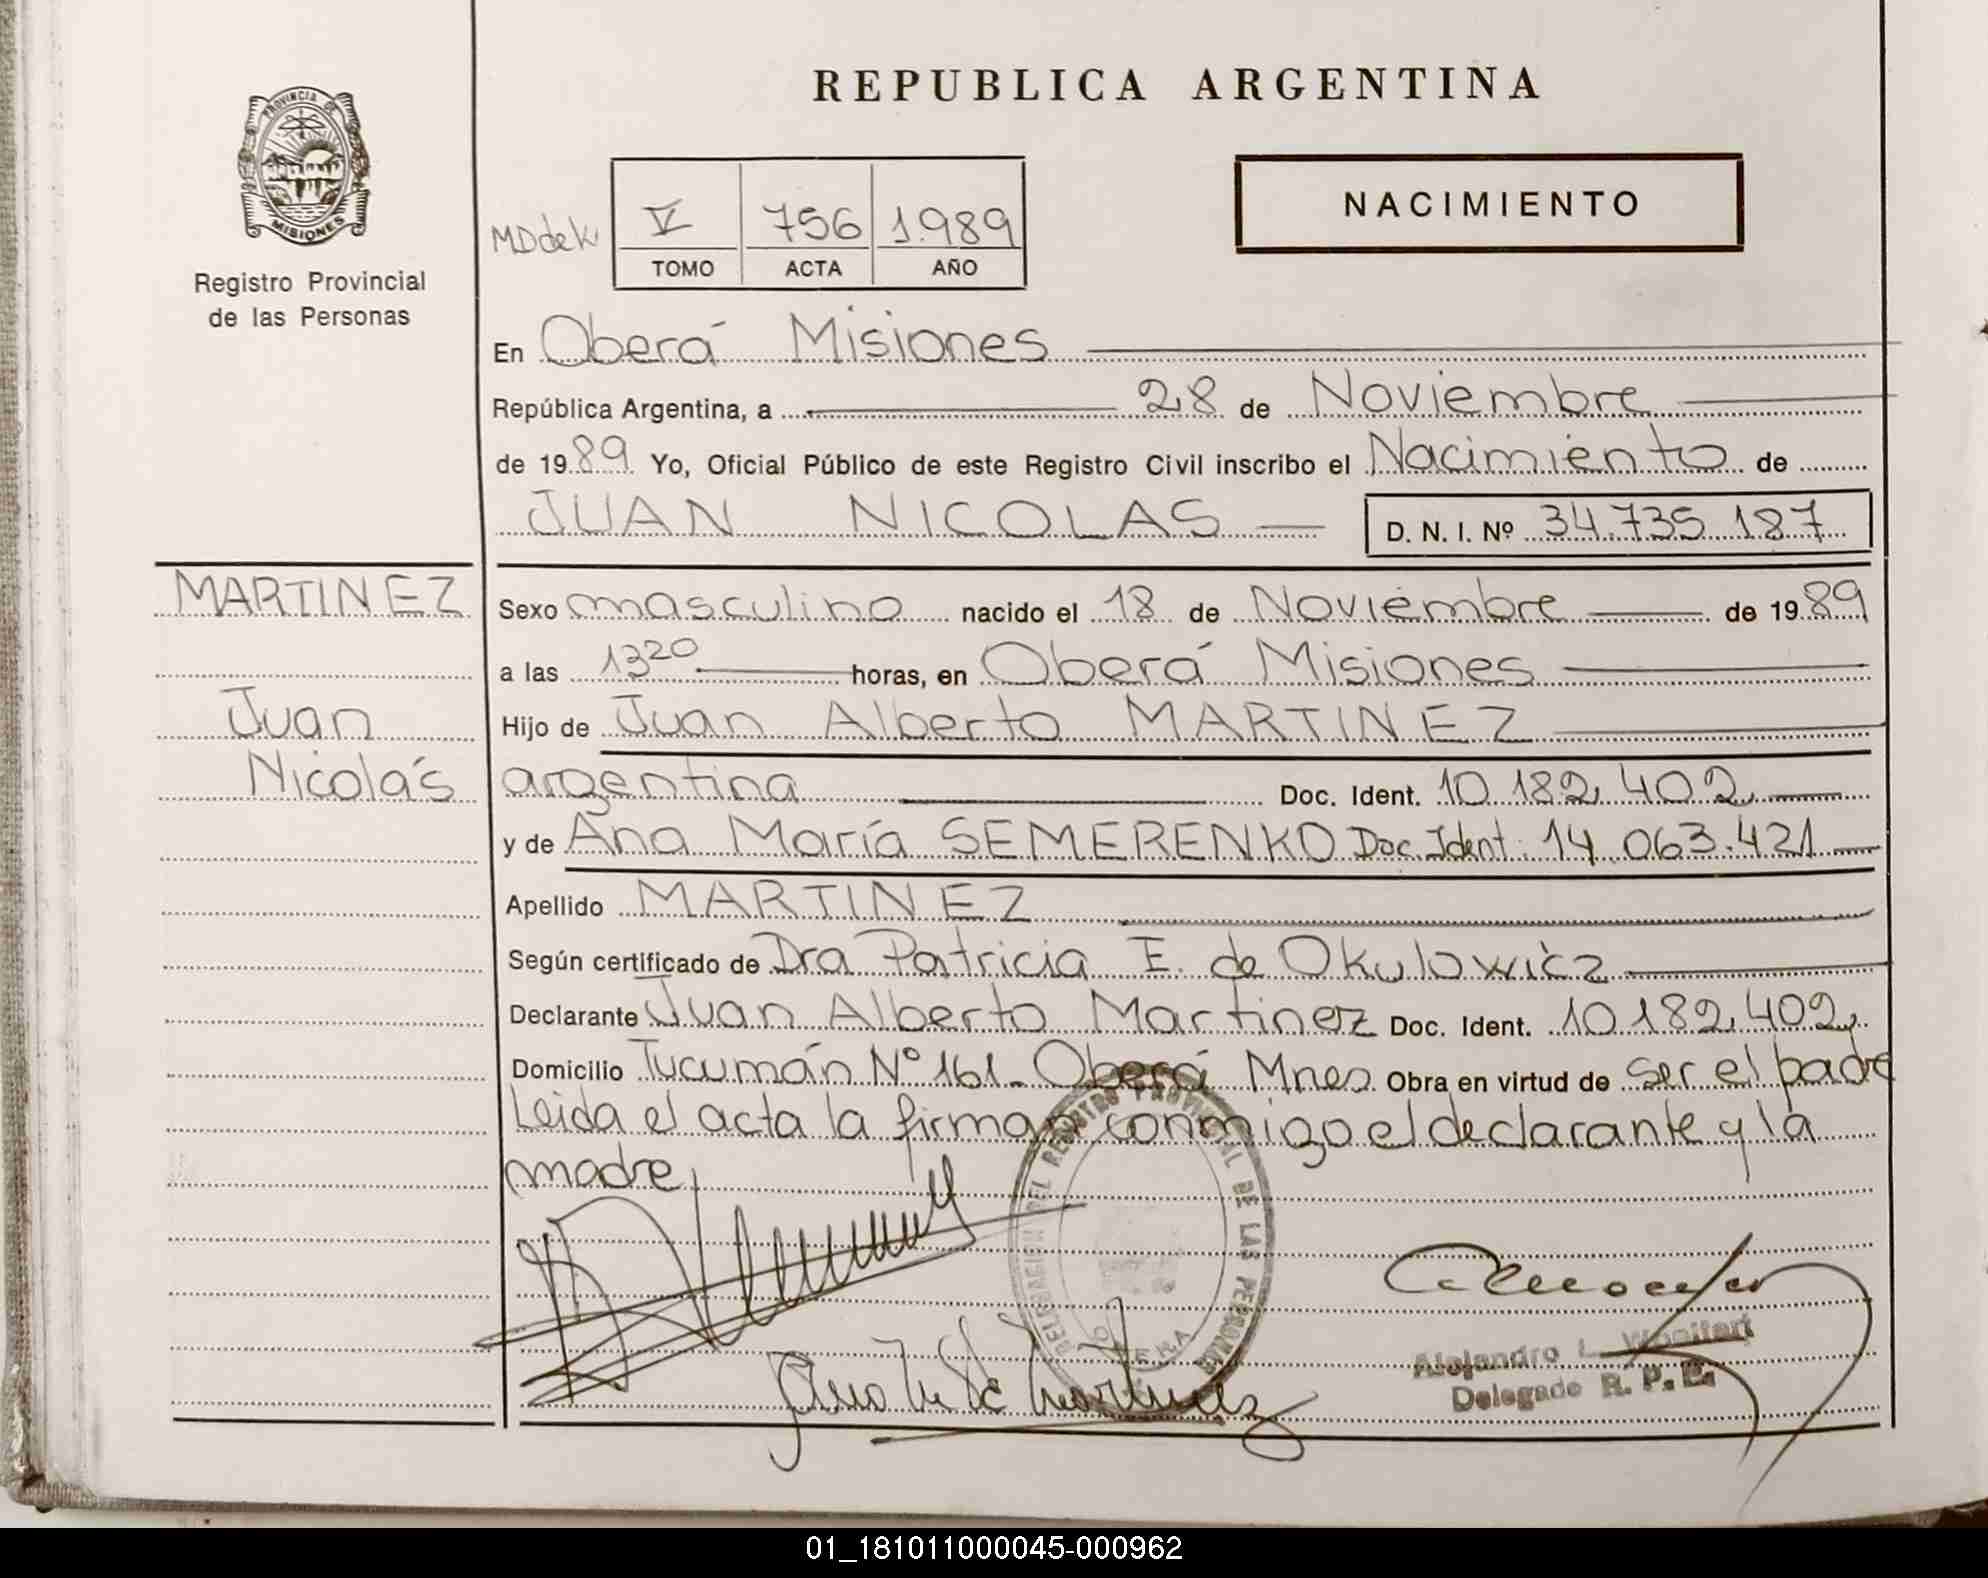 REPUBLICA ARGENTINA
PROVINCIA DE
MISIONES
Registro Provincial
de las Personas
NACIMIENTO
V 756 1.989
TOMO ACTA AÑO
En Oberá Misiones
República Argentina, a 28 de Noviembre
de 1989. Yo, Oficial Público de este Registro Civil inscribo el Nacimiento de
JUAN NICOLAS D. N. I. Nº 34.735.187
MARTINEZ
Juan
Nicolás
Sexo masculino nacido el 18 de Noviembre de 1989
a las 13 20 horas, en Oberá Misiones
Hijo de Juan Alberto MARTINEZ
argentina Doc. Ident. 10.182.402
y de Ana María SEMERENKO Doc. Ident. 14.063.421
Apellido MARTINEZ
Según certificado de Dra Patricia E. de Okulowicz
Declarante Juan Alberto Martinez Doc. Ident. 10.182.402
Domicilio Tucumán Nº 161 - Oberá Mnes Obra en virtud de ser el padre
Leida el acta la firman conmigo el declarante y la
madre
DELEGACION DEL REGISTRO PROVINCIAL DE LAS PERSONAS
OBERA
Alejandro L.
Delegado R. P. P.
01_181011000045-000962